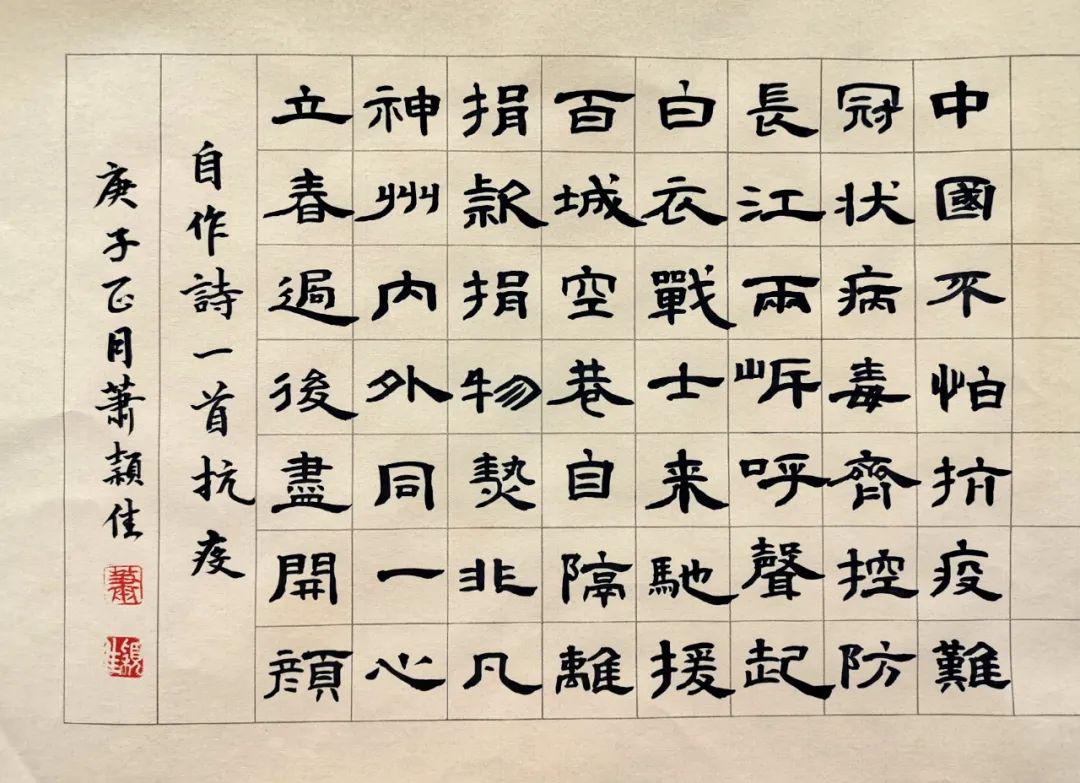 中國不怕抗疫難
冠狀病毒齊控防
長江兩岸呼聲起
白衣戰士来馳援
百城空巷自隔離
捐款捐物勢非凡
神州內外同一心
立春過後盡開顏
自作詩一首抗疫
庚子正月蕭穎佳
蕭
穎佳